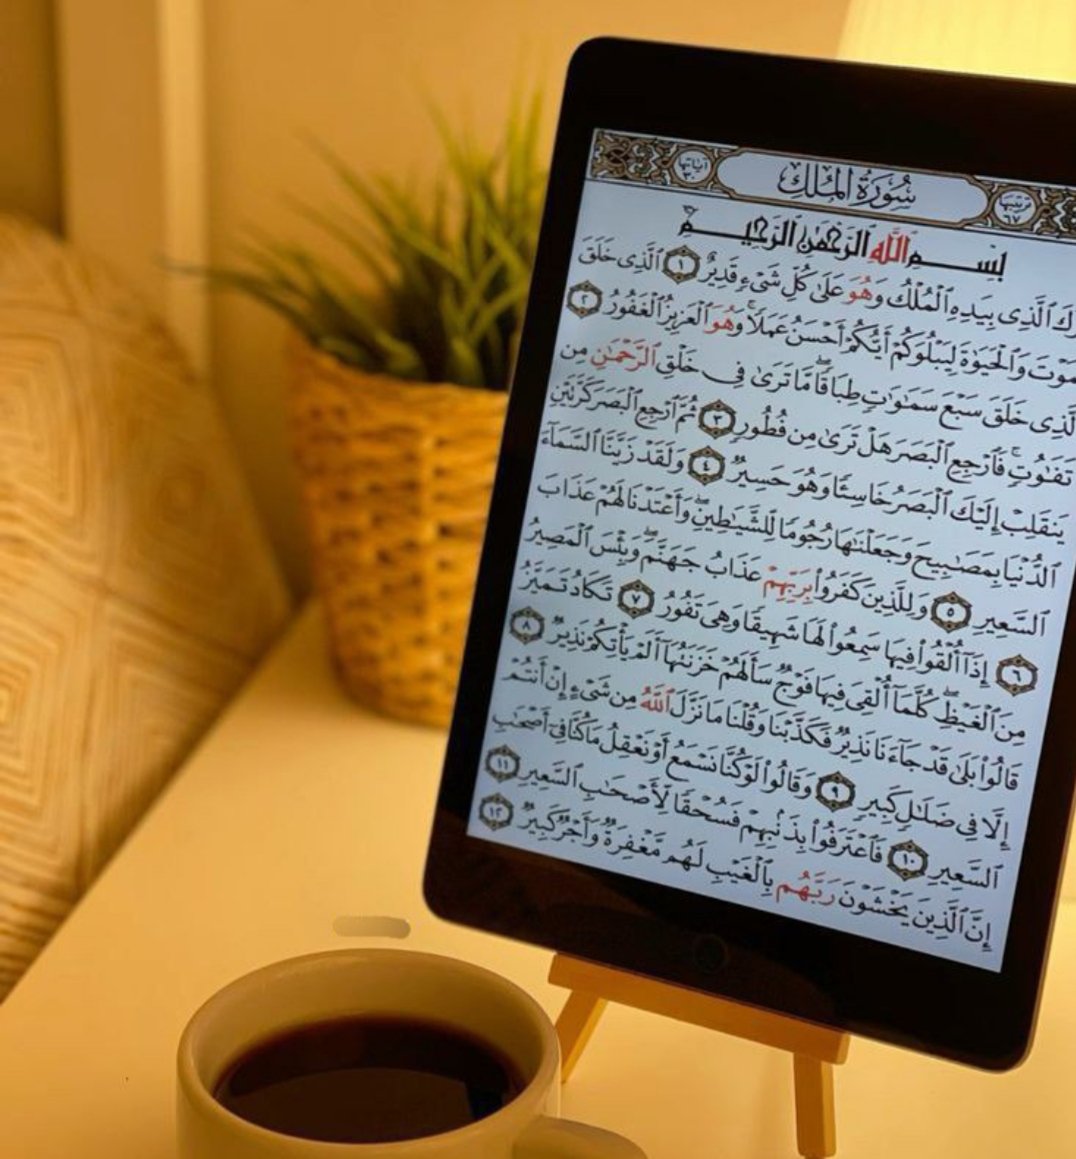 آياتها ٣٠ سُورَةُ الْمُلْكِ ترتيبها ٦٧
بِسْمِ اللَّهِ الرَّحْمَٰنِ الرَّحِيمِ
رَكَ ٱلَّذِى بِيَدِهِ ٱلْمُلْكُ وَهُوَ عَلَىٰ كُلِّ شَىْءٍ قَدِيرٌ ١ ٱلَّذِى خَلَقَ
مَوْتَ وَٱلْحَيَوٰةَ لِيَبْلُوَكُمْ أَيُّكُمْ أَحْسَنُ عَمَلًا ۚ وَهُوَ ٱلْعَزِيزُ ٱلْغَفُورُ ٢
لَّذِى خَلَقَ سَبْعَ سَمَٰوَٰتٍ طِبَاقًا ۖ مَّا تَرَىٰ فِى خَلْقِ ٱلرَّحْمَٰنِ مِن
تَفَٰوُتٍ ۖ فَٱرْجِعِ ٱلْبَصَرَ هَلْ تَرَىٰ مِن فُطُورٍ ٣ ثُمَّ ٱرْجِعِ ٱلْبَصَرَ كَرَّتَيْنِ
يَنقَلِبْ إِلَيْكَ ٱلْبَصَرُ خَاسِئًا وَهُوَ حَسِيرٌ ٤ وَلَقَدْ زَيَّنَّا ٱلسَّمَآءَ
ٱلدُّنْيَا بِمَصَٰبِيحَ وَجَعَلْنَٰهَا رُجُومًا لِّلشَّيَٰطِينِ ۖ وَأَعْتَدْنَا لَهُمْ عَذَابَ
ٱلسَّعِيرِ ٥ وَلِلَّذِينَ كَفَرُوا۟ بِرَبِّهِمْ عَذَابُ جَهَنَّمَ ۖ وَبِئْسَ ٱلْمَصِيرُ
٦ إِذَآ أُلْقُوا۟ فِيهَا سَمِعُوا۟ لَهَا شَهِيقًا وَهِىَ تَفُورُ ٧ تَكَادُ تَمَيَّزُ
مِنَ ٱلْغَيْظِ ۖ كُلَّمَآ أُلْقِىَ فِيهَا فَوْجٌ سَأَلَهُمْ خَزَنَتُهَآ أَلَمْ يَأْتِكُمْ نَذِيرٌ ٨
قَالُوا۟ بَلَىٰ قَدْ جَآءَنَا نَذِيرٌ فَكَذَّبْنَا وَقُلْنَا مَا نَزَّلَ ٱللَّهُ مِن شَىْءٍ إِنْ أَنتُمْ
إِلَّا فِى ضَلَٰلٍ كَبِيرٍ ٩ وَقَالُوا۟ لَوْ كُنَّا نَسْمَعُ أَوْ نَعْقِلُ مَا كُنَّا فِىٓ أَصْحَٰبِ
ٱلسَّعِيرِ ١٠ فَٱعْتَرَفُوا۟ بِذَنۢبِهِمْ فَسُحْقًا لِّأَصْحَٰبِ ٱلسَّعِيرِ ١١
إِنَّ ٱلَّذِينَ يَخْشَوْنَ رَبَّهُم بِٱلْغَيْبِ لَهُم مَّغْفِرَةٌ وَأَجْرٌ كَبِيرٌ ١٢